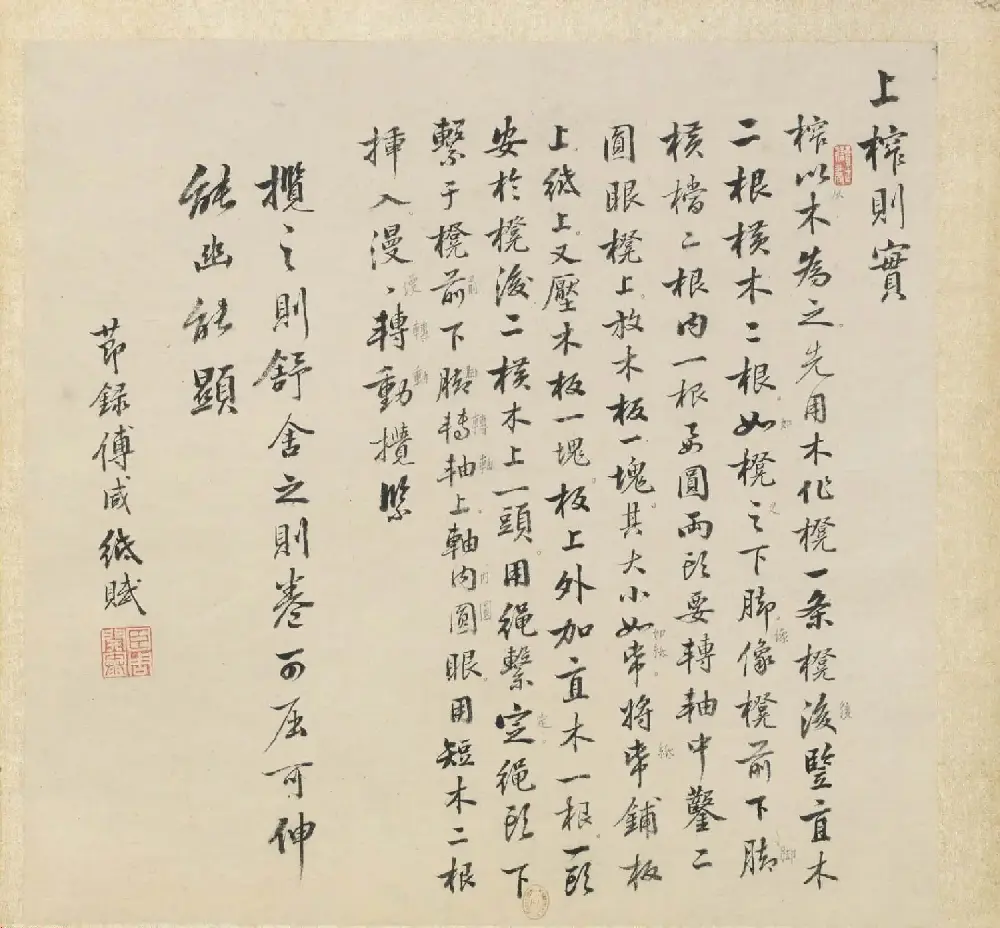 上榨則實
榨以木為之先用木作櫈一条櫈後竪直木
二根横木二根如櫈之下脚像櫈前下脚
横檔二根内一根要圓兩頭要轉軸中鑿二
圓眼櫈上放木板一塊其大小如帋将帋鋪板
上紙上又壓木板一塊板上外加直木一根一頭
安於櫈後二横木上一頭用繩繫定繩頭下
繫于櫈前下脚转軸上軸内圓眼用短木二根
揷入漫、轉動攪緊
攬之則舒舍之則卷可屈可伸
能幽能顯
節録傅咸紙賦